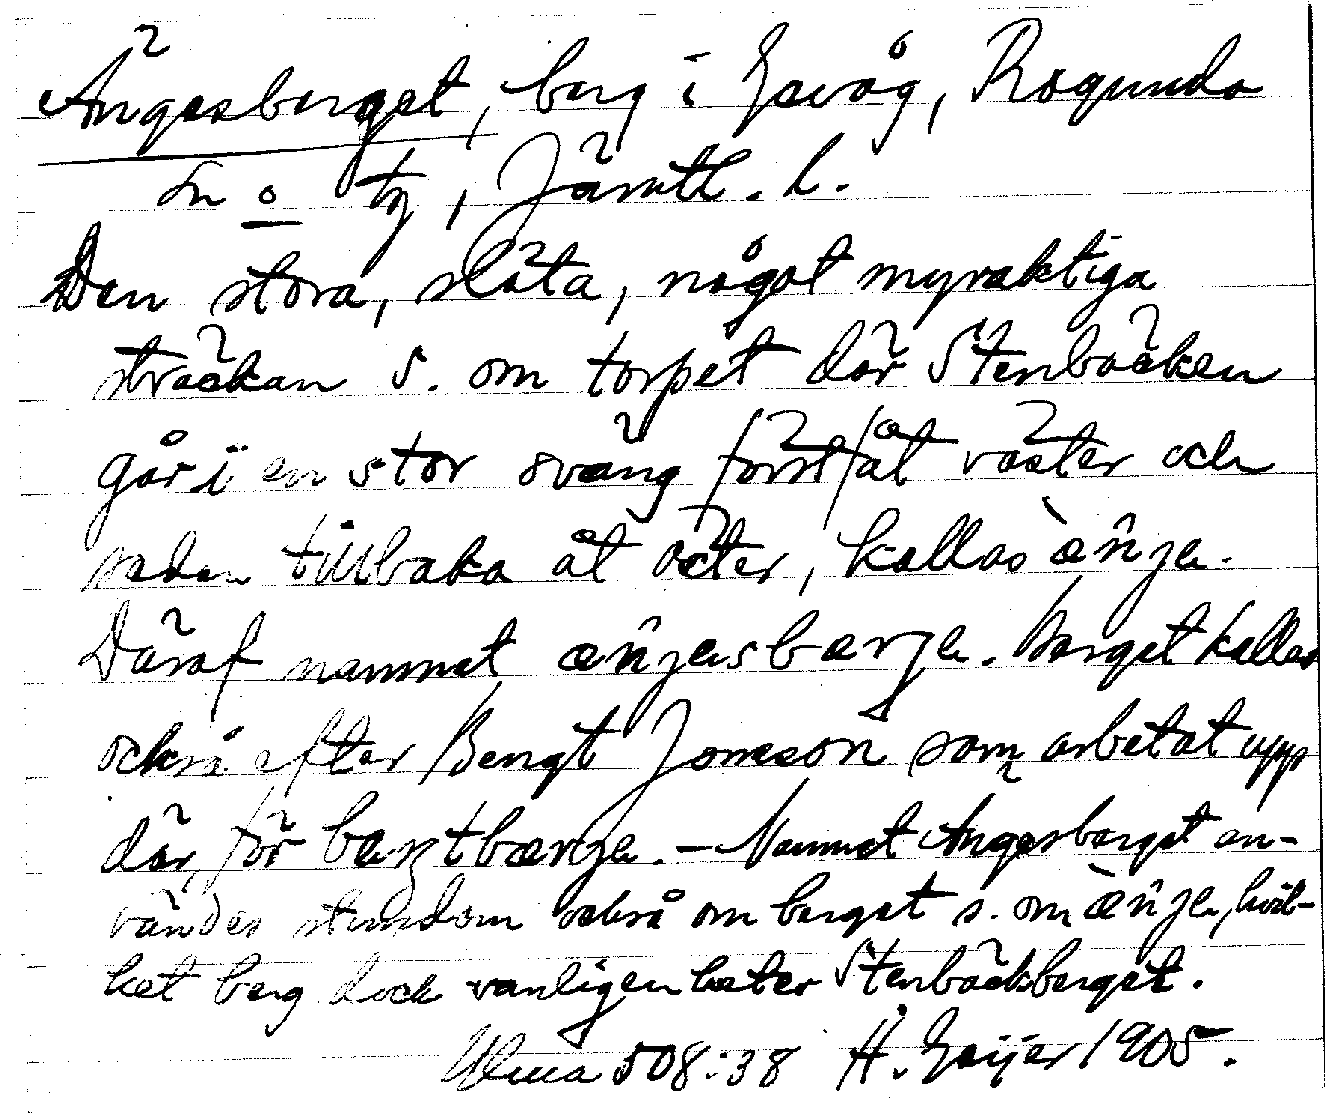 Ängesberget, berg i Gevåg, Ragunda
sn o tg, Jämtl. l.
Den stora, släta, något myraktiga
sträckan s. om torpet där Stenbäcken
går i en stor sväng först åt väster och
sedan tillbaka åt öster, kallas ænje.
Däraf namnet ænjesbærje. Berget kallas
också efter Bengt Jonsson som arbetat upp
där, för bæŋtbærje. – Namnet Ängesberget an-
vändes stundom också om berget s. om ænje, hvil-
ket berg dock vanligen heter Stenbäckberget.
Ulma 508:38 H. Geijer 1905.